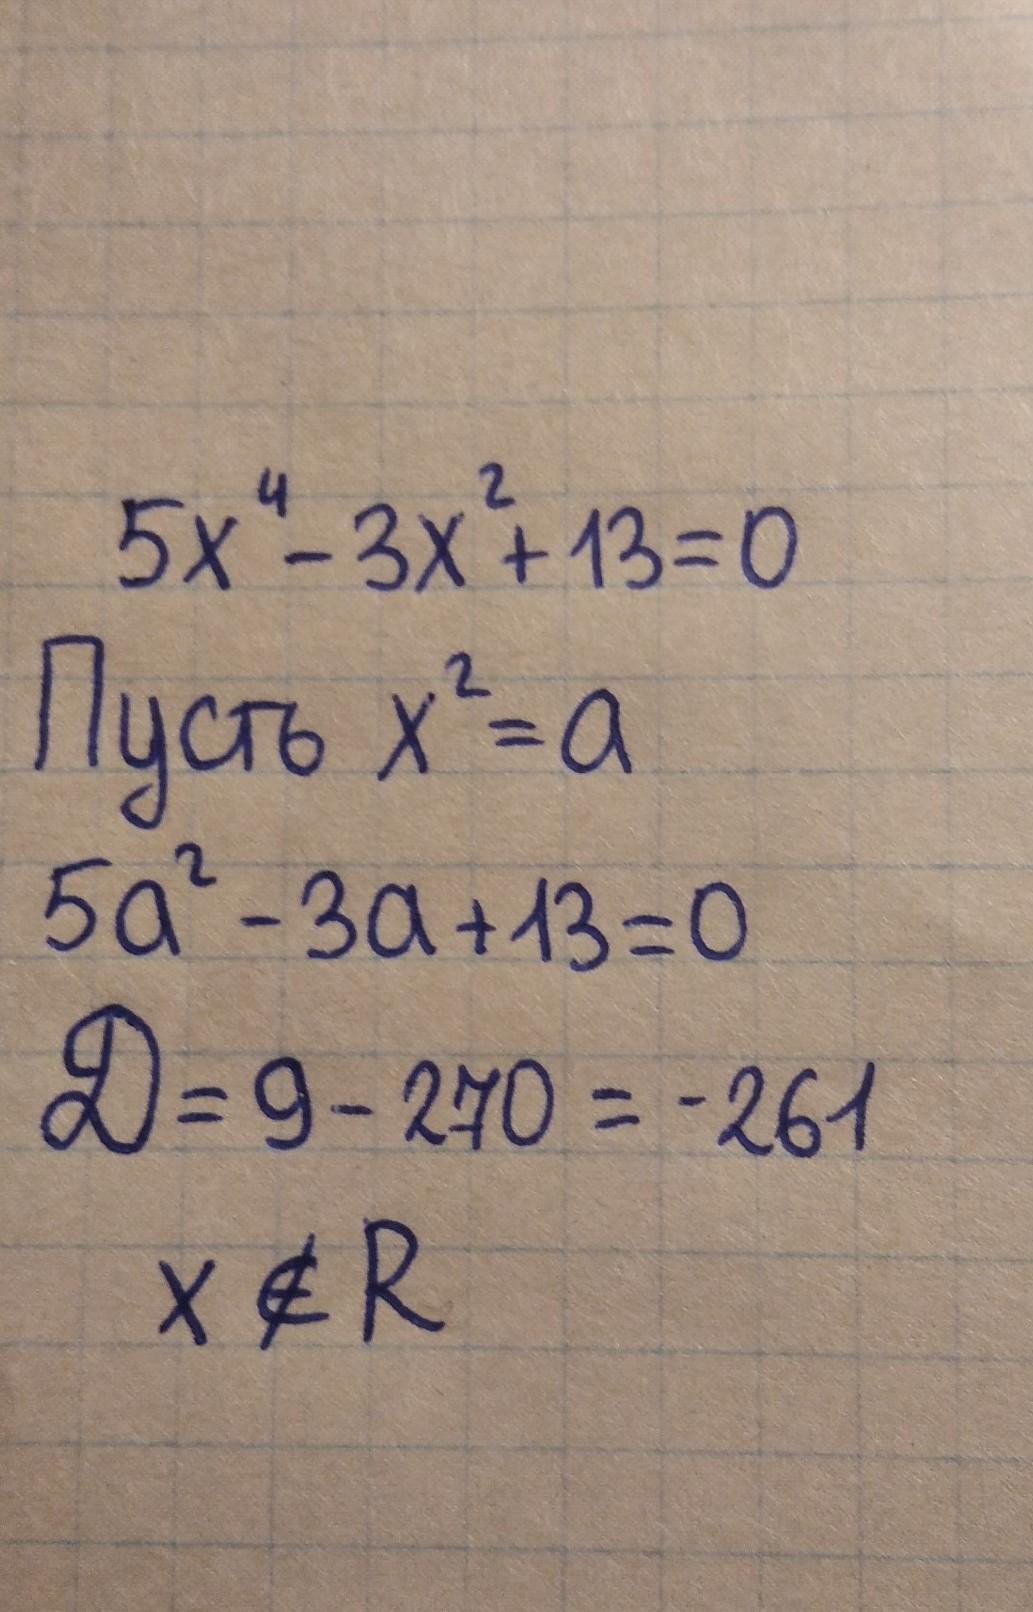 5x⁴ - 3x² + 13 = 0
Пусть x² = a
5a² - 3a + 13 = 0
D = 9 - 270 = -261
x ∉ R